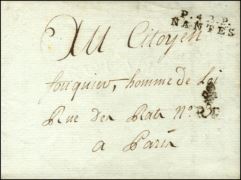 P.4.2.P.
NANTES
Au Citoyen
fouquier, homme de Loi
Rue des Rats N°
a Paris